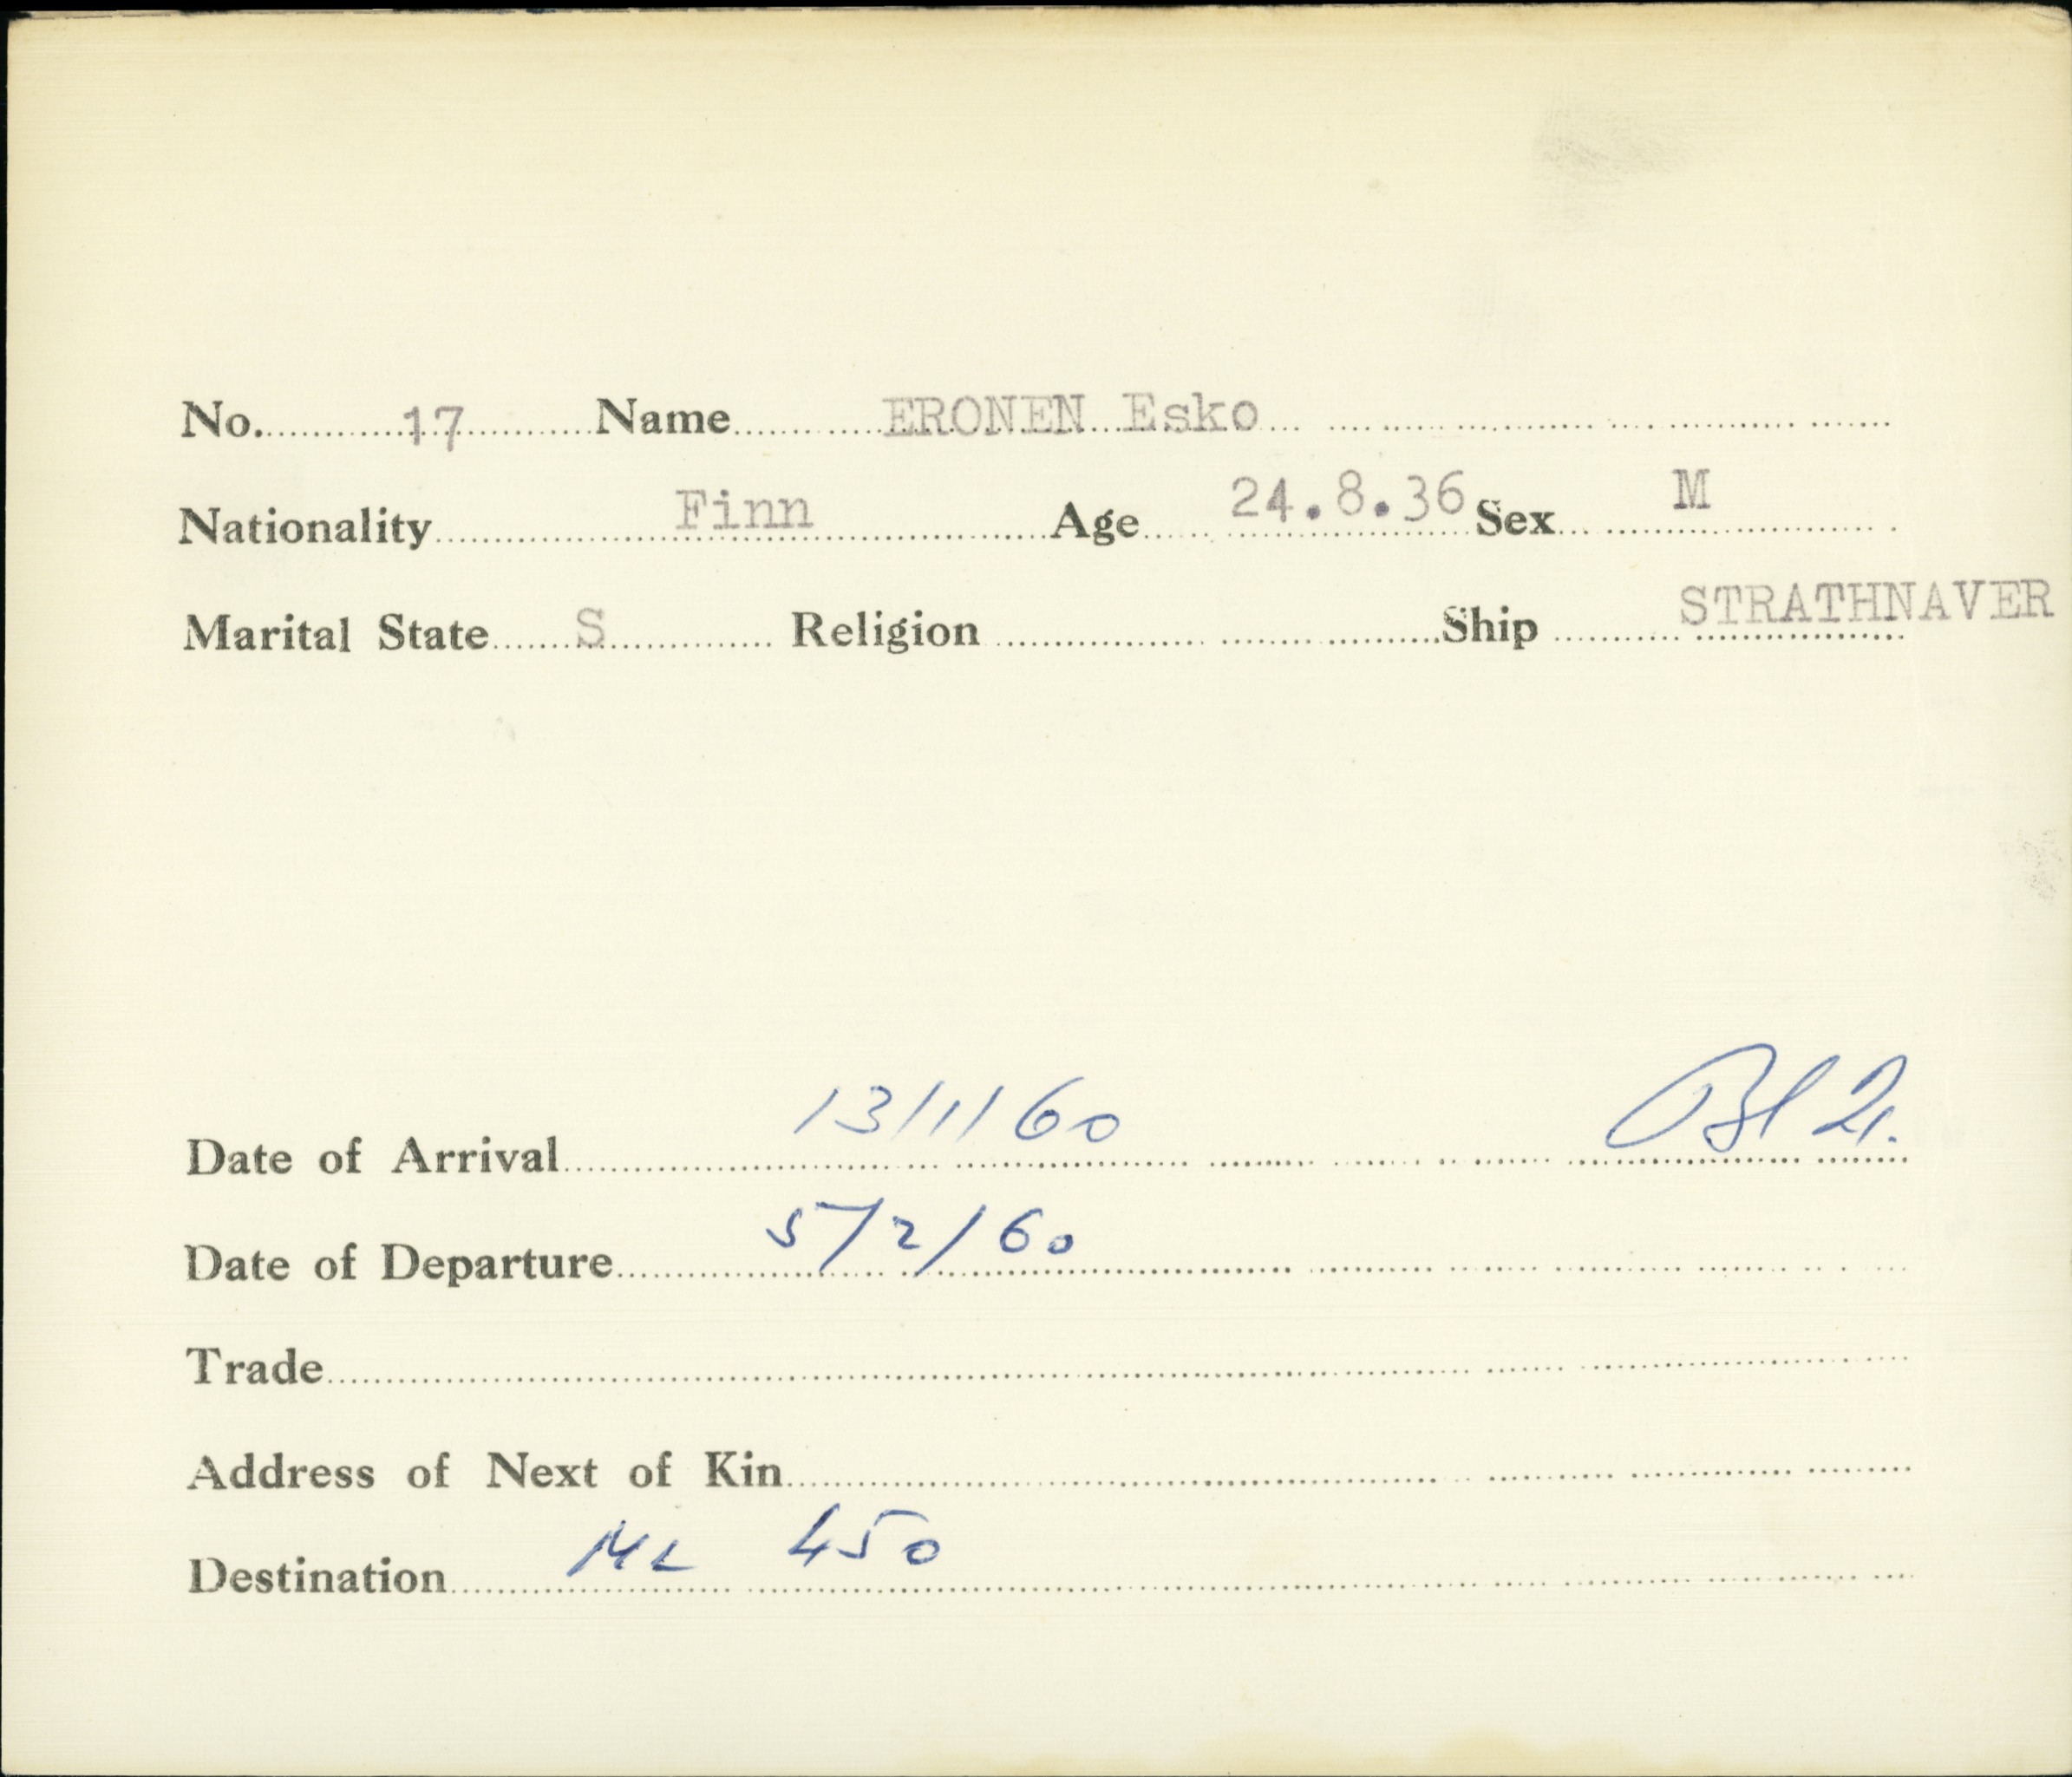 No. 17 Name ERONEN Esko
Nationality Finn Age 24.8.36 Sex M
Marital State S Religion Ship STRATHNAVER
Date of Arrival 13/1/60 Bl 21.
Date of Departure 5/2/60
Trade
Address of Next of Kin
Destination 450